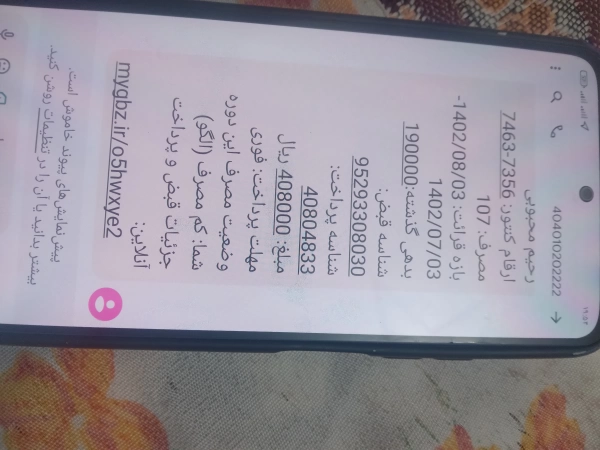 ۱۹:۵۴
404010202222
رحیم محبوبی
ارقام کنتور: 7356-7463
مصرف: 107
بازه قرائت: 1402/08/03-
1402/07/03
بدهی گذشته:190000
شناسه قبض:
95293308030
شناسه پرداخت:
40804833
مبلغ: 408000 ریال
مهلت پرداخت: فوری
وضعیت مصرف این دوره
شما: کم مصرف (الگو)
جزئیات قبض و پرداخت
آنلاین:
mygbz.ir/o5hwxye2
پیش‌نمایش‌های پیوند خاموش است.
بیشتر بدانید یا آن را در تنظیمات روشن کنید.